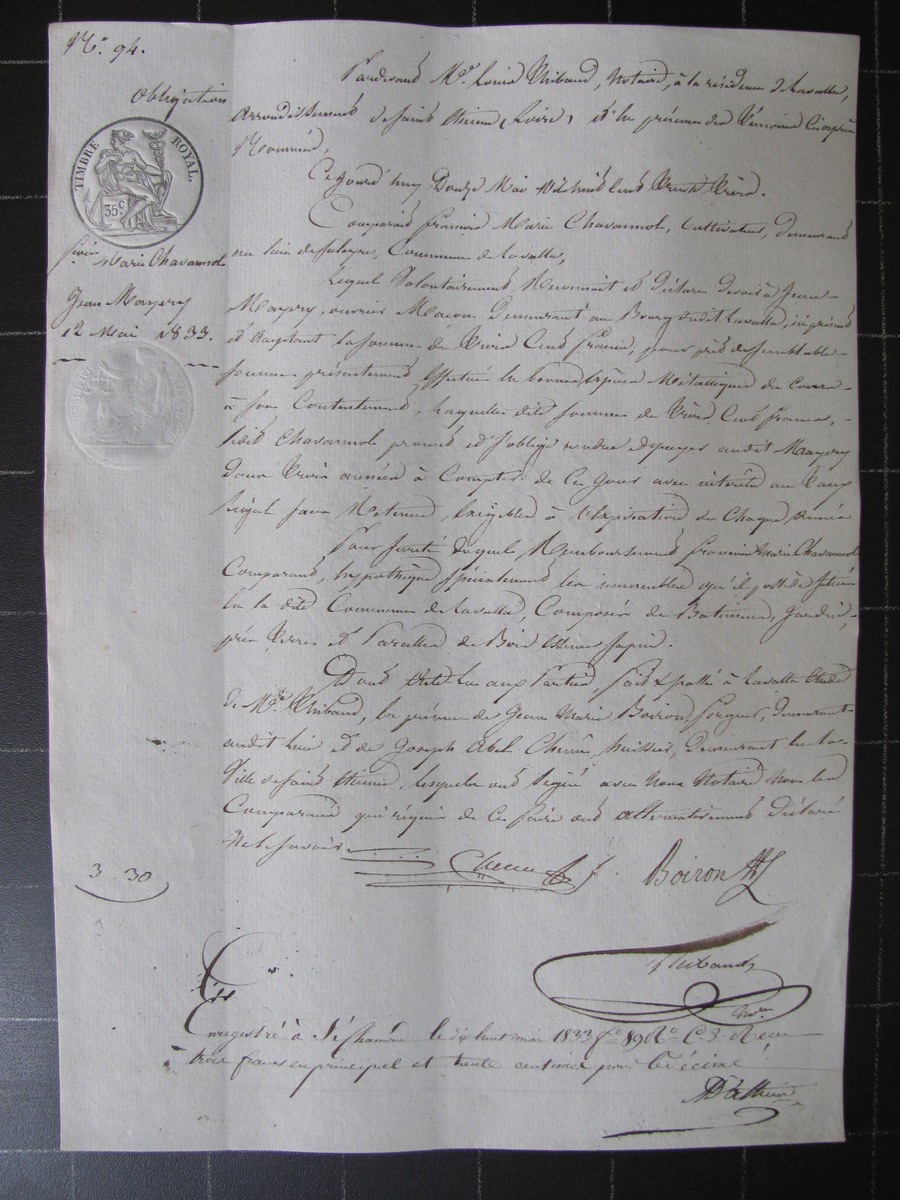 N.° 94.
Obligation
TIMBRE ROYAL.
35 c
Marie Chavannol
Jean Mayery
12 Mai 1833.
3 30
Pardevant M.e Louis Thibaud, Notaire, à la résidence de Lavalla,
arrondissement de Saint Etienne (Loire) et en présence des témoins ci après
Nommés,
Ce jourd'huy Douze Mai Mil huit cent trente trois.
Comparait François Marie Chavannol, cultivateur, demeurant
au lieu de Commune de Lavalla,
Lequel Volontairement Reconnait et déclare devoir à Jean
Mayery, ouvrier Maçon demeurant au Bourg dudit Lavalla, ici présent
et acceptant la somme de trois Cent francs, pour prêt de semblable
somme présentement effectué en bonnes espèces Métalliques du cours
à son Contentement, Laquelle dite somme de trois Cent francs,
ledit Chavannol promet et s'oblige rendre et payer audit Mayery
dans trois années à Compter de Ce jour avec intérêts au taux
légal sans Retenue, exigibles à l'expiration de Chaque année
Pour sureté duquel Remboursement François Marie Chavannol
Comparant, hypothèque spécialement les immeubles qu'il possède situés
en la dite Commune de Lavalla, Composés de Batiments, jardin,
prés terres et Parcelles de Bois essence sapin.
Dont acte Lu aux Parties, fait & passé à Lavalla Etude
de M.e Thibaud, en présence de Jean Marie Boiron, forgeur, demeurant
audit lieu et de Joseph Abel Chenet, huissier, demeurant en la
Ville de Saint Etienne, lesquels ont signé avec Nous Notaire Non les
Comparants qui requis de Ce faire ont alternativement déclaré
Ne le savoir.
Boiron
Thibaud
Nre
Enregistré à St Chamond le dix huit mai 1833 f.° 89 R.° C. 3. Reçu
trois francs en principal et trente centimes pour le décime